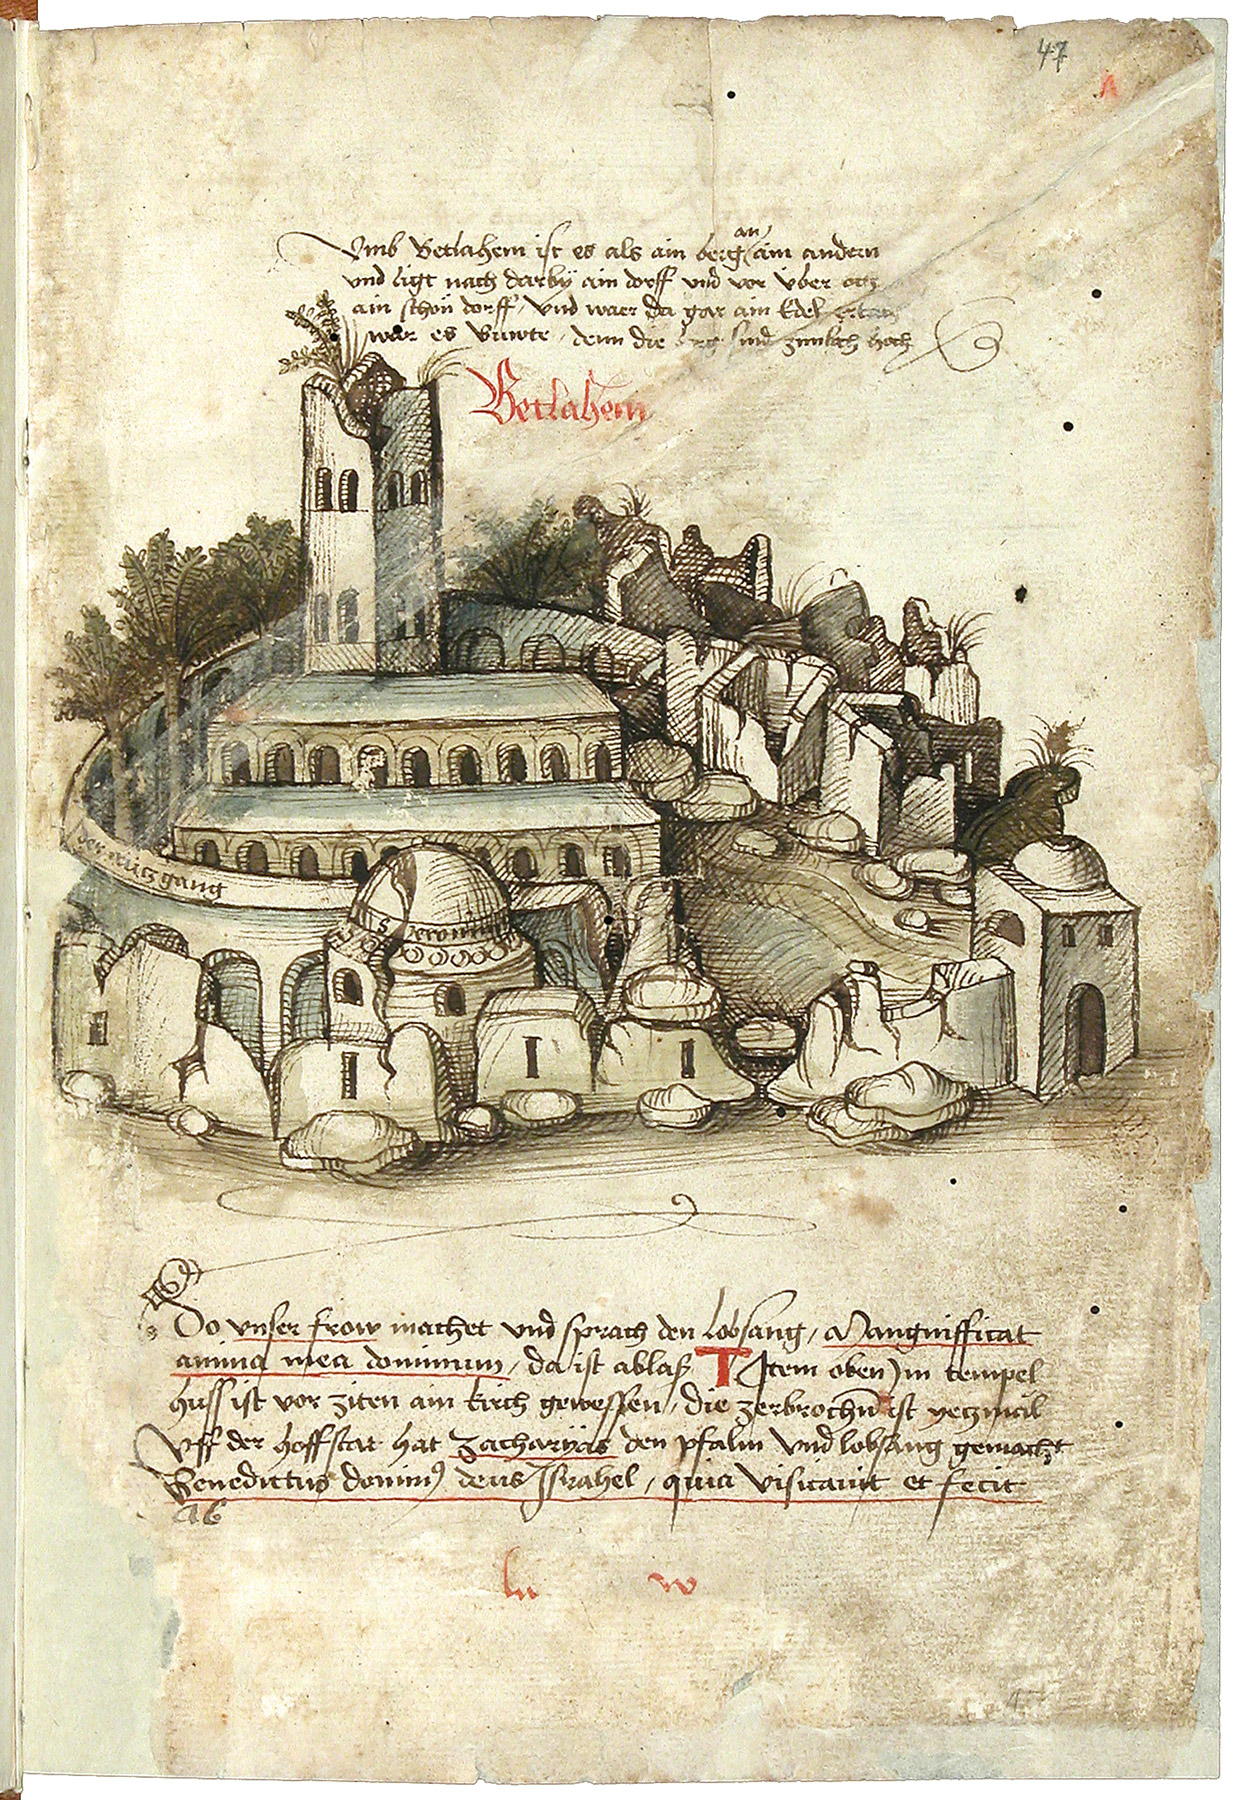 47
A
Vmb Betlahem ist es als ain berg an ain andern
vnd ligt nach darbÿ ain dorff vnd vor vber
ain schön dorff / vnd waer da gar ain Edel
war es buwte / denn die berg sind zimlich hoch
Betlahem
der crutzgang
S Jeronim
Do vnser frow machet vnd sprach den lobsang / Mangnifficat
anima mea dominum / da ist ablaß T Item oben Im tempel
huss ist vor ziten ain kirch gewessen / die zerbrochñ ist yeczmāl
Vff der hoffstat hat Zacharÿas den psalm vnd lobsang gemacht
Benedictus dominꝰ deus Jsrahel / quia visitauit et fecit
lu w